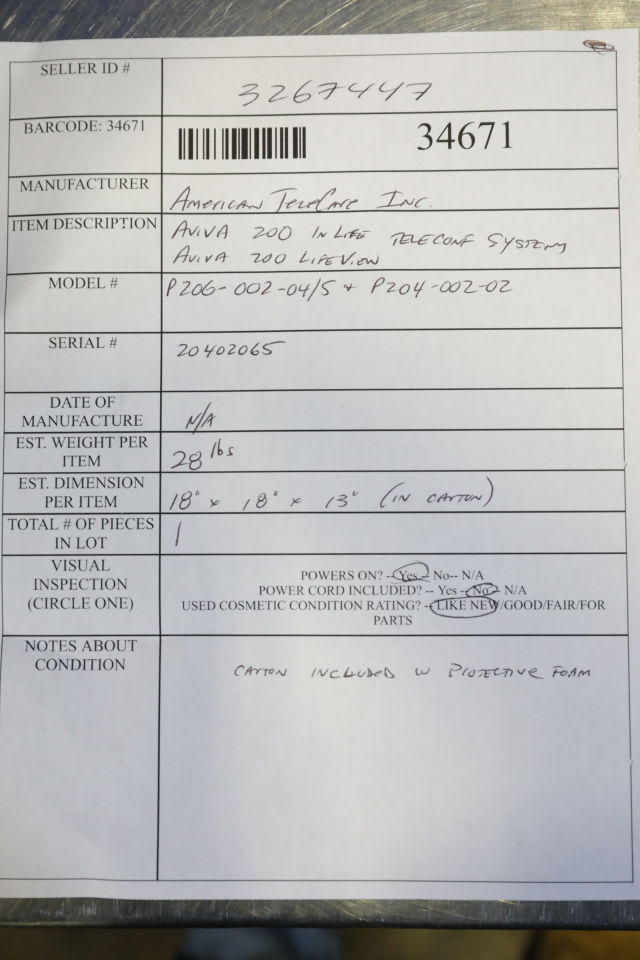 SELLER ID # 3267447
BARCODE: 34671 34671
MANUFACTURER American TeleCare Inc.
ITEM DESCRIPTION AVIVA 200 IN LIFE TELECONF SYSTEM
AVIVA 200 LIFEVIEW
MODEL # P206-002-04/5 + P204-002-02
SERIAL # 20402065
DATE OF
MANUFACTURE N/A
EST. WEIGHT PER
ITEM 28 lbs
EST. DIMENSION
PER ITEM 18" x 18" x 13" (IN CARTON)
TOTAL # OF PIECES
IN LOT 1
VISUAL
INSPECTION
(CIRCLE ONE)
POWERS ON? -- Yes -- No-- N/A
POWER CORD INCLUDED? -- Yes -- No -- N/A
USED COSMETIC CONDITION RATING? -- LIKE NEW/GOOD/FAIR/FOR
PARTS
NOTES ABOUT
CONDITION
CARTON INCLUDED W PROTECTIVE FOAM